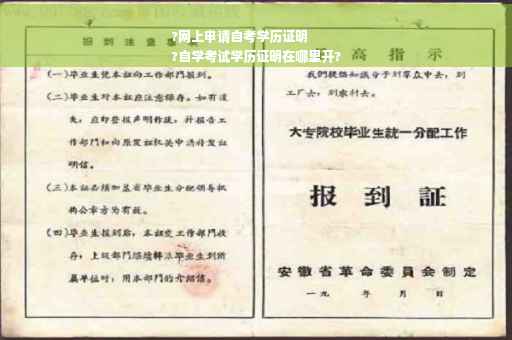 ?网上申请自考学历证明
?自学考试学历证明在哪里开?
报到注意事项
(一)毕业生凭本证向工作部门报到。
(二)毕业生对本证应注意保存。如有遗
失，应即登报声明作废，并报告工
作部门和向原发证机关申请补发证
明信。
(三)本证必须加盖省毕业生分配领导机
构公章方为有效。
(四)毕业生报到后，本证交工作部门收
存；上级部门继续转派毕业生到所
属单位时，用本部门的介绍信。
高指示
我们提倡知识分子到群众中去，到
工厂去，到农村去。
大专院校毕业生統一分配工作
报到証
安徽省革命委員会制定
一九 年 月 日